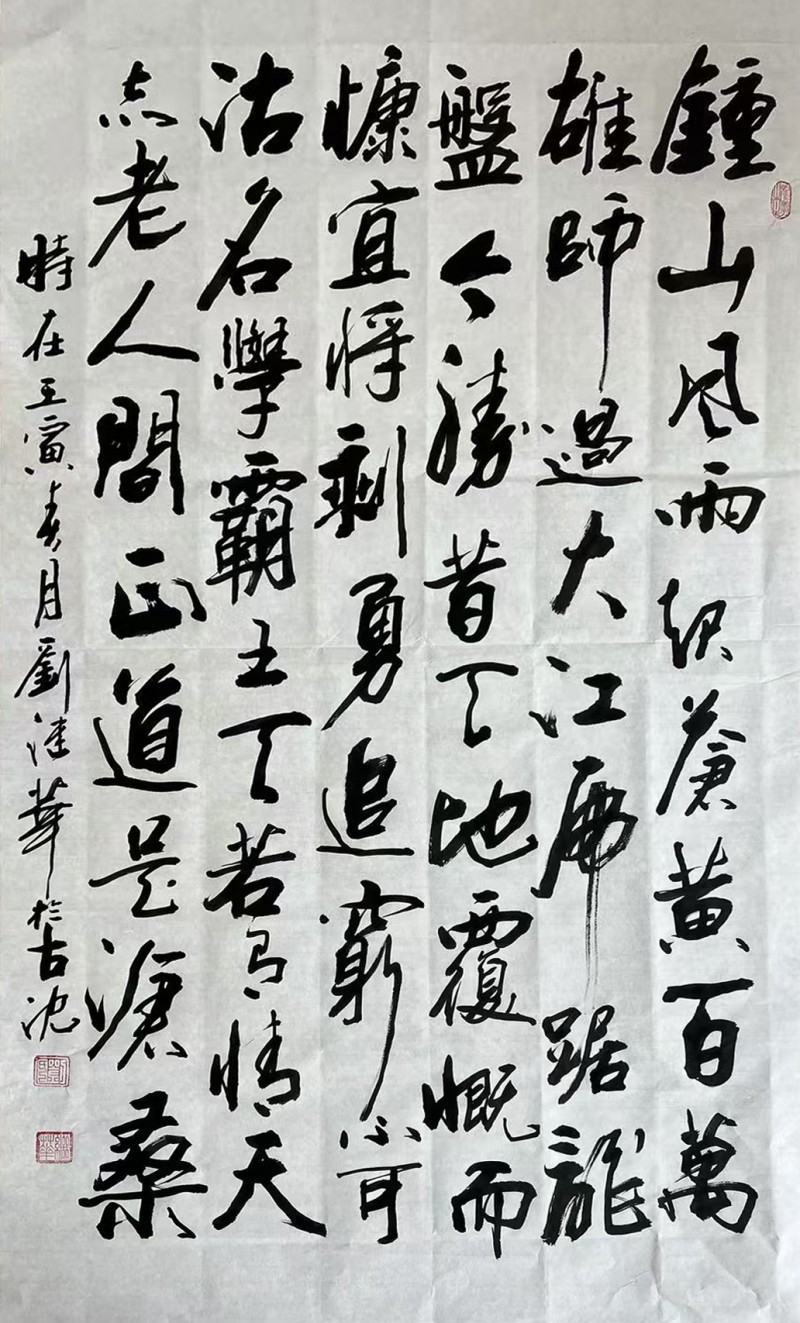 鍾山風雨起蒼黃百萬
雄師過大江虎踞龍
盤今勝昔天地覆慨而
慷宜將剩勇追窮不可
沽名學霸王天若有情天
亦老人間正道是滄桑
時在壬寅春月劉華於古沈